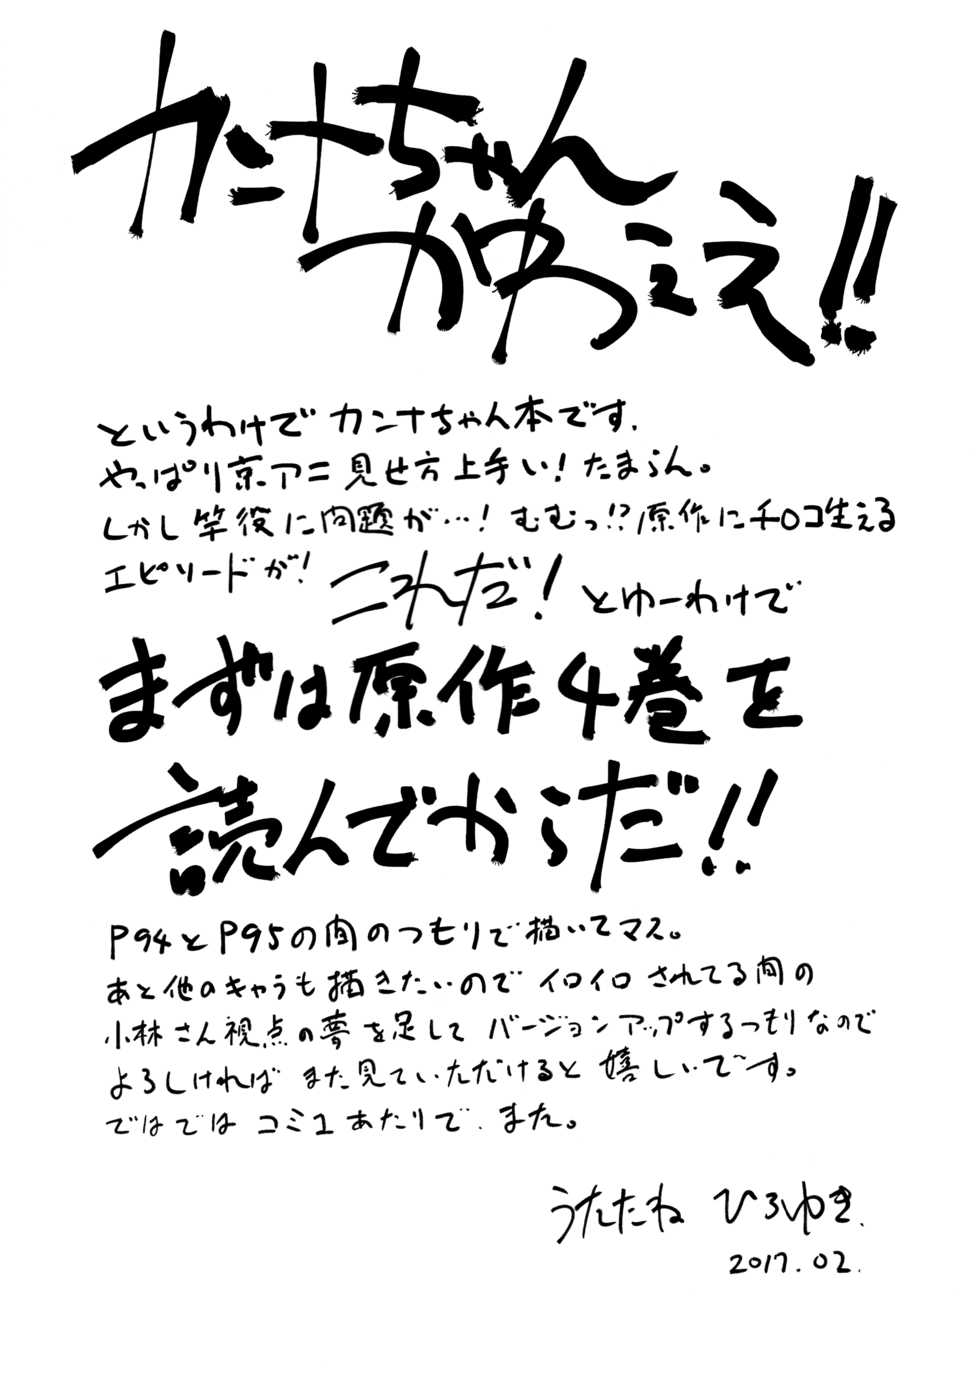 カンナちゃん
かわぇぇ!!
というわけで カンナちゃん本です.
やっぱり京アニ 見せ方上手い! たまらん。
しかし竿役に問題が…! むむっ!? 原作にチロコ生える
エピソードが! これだ! とゆーわけで
まずは原作4巻を
読んでからだ!!
P94とP95の間のつもりで描いてマス。
あと他のキャラも描きたいので イロイロされてる間の
小林さん視点の夢を足して バージョンアップするつもりなので
よろしければ また見ていただけると嬉しいです。
ではでは コミ1あたりで. また。
うたたね ひろゆき.
2017.02.